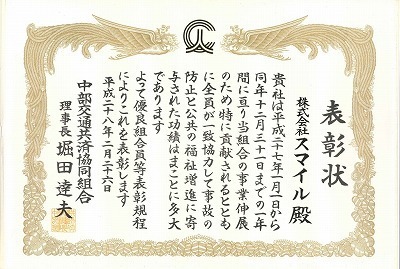 表彰状
株式会社スマイル殿
貴社は平成二十七年一月一日から
同年十二月三十一日までの一年
間に亘り当組合の事業伸展
のため特に貢献されるととも
に全員が一致協力して事故の
防止と公共の福祉増進に寄
与された功績はまことに多大
であります
よって優良組合員等表彰規程
によりこれを表彰します
平成二十八年二月二十六日
中部交通共済協同組合
理事長 堀田達夫